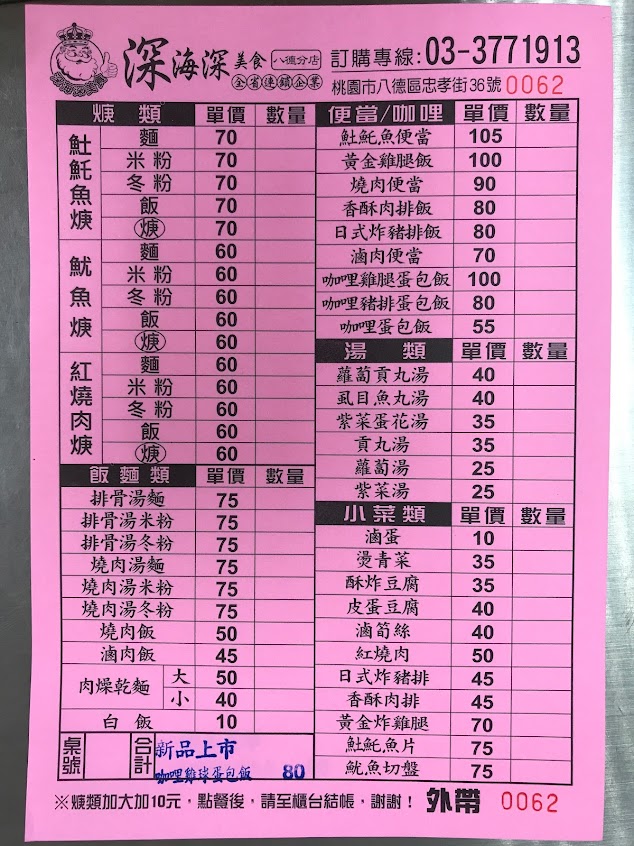 深海深美食 八德分店
全省連鎖企業
訂購專線:03-3771913
桃園市八德區忠孝街36號 0062
焿類 單價 數量
𩵚魠魚焿
麵 70
米粉 70
冬粉 70
飯 70
焿 70
魷魚焿
麵 60
米粉 60
冬粉 60
飯 60
焿 60
紅燒肉焿
麵 60
米粉 60
冬粉 60
飯 60
焿 60
飯麵類 單價 數量
排骨湯麵 75
排骨湯米粉 75
排骨湯冬粉 75
燒肉湯麵 75
燒肉湯米粉 75
燒肉湯冬粉 75
燒肉飯 50
滷肉飯 45
肉燥乾麵 大 50
小 40
白飯 10
桌號 合計
新品上市
咖哩雞球蛋包飯 80
便當/咖哩 單價 數量
𩵚魠魚便當 105
黃金雞腿飯 100
燒肉便當 90
香酥肉排飯 80
日式炸豬排飯 80
滷肉便當 70
咖哩雞腿蛋包飯 100
咖哩豬排蛋包飯 80
咖哩蛋包飯 55
湯類 單價 數量
蘿蔔貢丸湯 40
虱目魚丸湯 40
紫菜蛋花湯 35
貢丸湯 35
蘿蔔湯 25
紫菜湯 25
小菜類 單價 數量
滷蛋 10
燙青菜 35
酥炸豆腐 35
皮蛋豆腐 40
滷筍絲 40
紅燒肉 50
日式炸豬排 45
香酥肉排 45
黃金炸雞腿 70
𩵚魠魚片 75
魷魚切盤 75
※焿類加大加10元,點餐後,請至櫃台結帳,謝謝! 外帶 0062